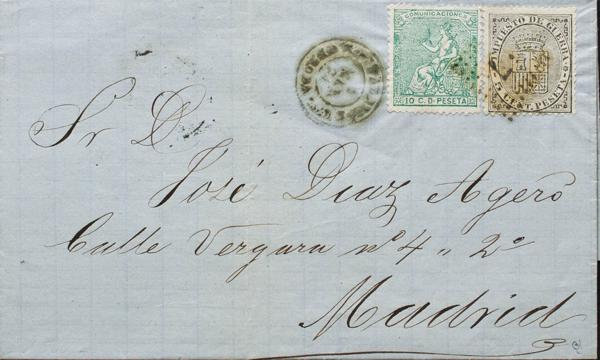 COMUNICACIONES
10 C. D. PESETA
IMPUESTO DE GUERRA
5 CENT. PESETA
Sr D.
José Diaz Agero
Calle Vergara nº 4 " 2º
Madrid